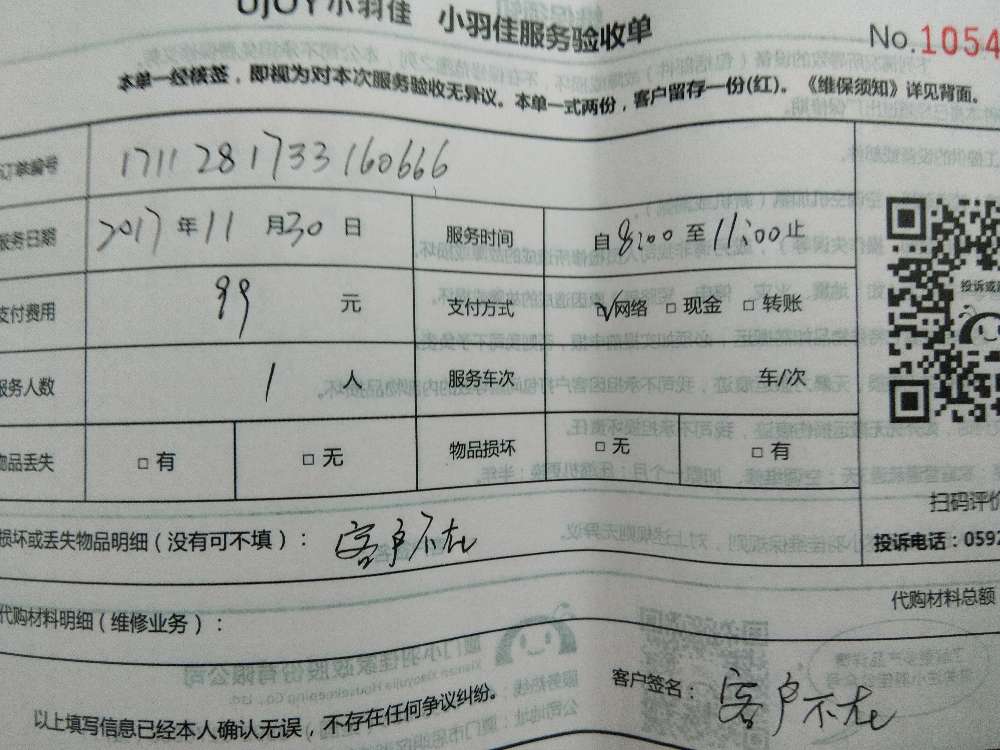 UJOY小羽佳 小羽佳服务验收单
No.1054
本单一经核签，即视为对本次服务验收无异议。本单一式两份，客户留存一份(红)。《维保须知》详见背面。
订单编号 1711281733160666
服务日期 2017 年 11 月 30 日 服务时间 自 8:00 至 11:00 止
支付费用 99 元 支付方式 ☑网络 □ 现金 □ 转账
服务人数 1 人 服务车次 车/次
物品丢失 □ 有 □ 无 物品损坏 □ 无 □ 有
投诉或
扫码评价
损坏或丢失物品明细（没有可不填）： 客户不在
投诉电话：0592
代购材料明细（维修业务）：
代购材料总额
客户签名： 客户不在
以上填写信息已经本人确认无误，不存在任何争议纠纷。